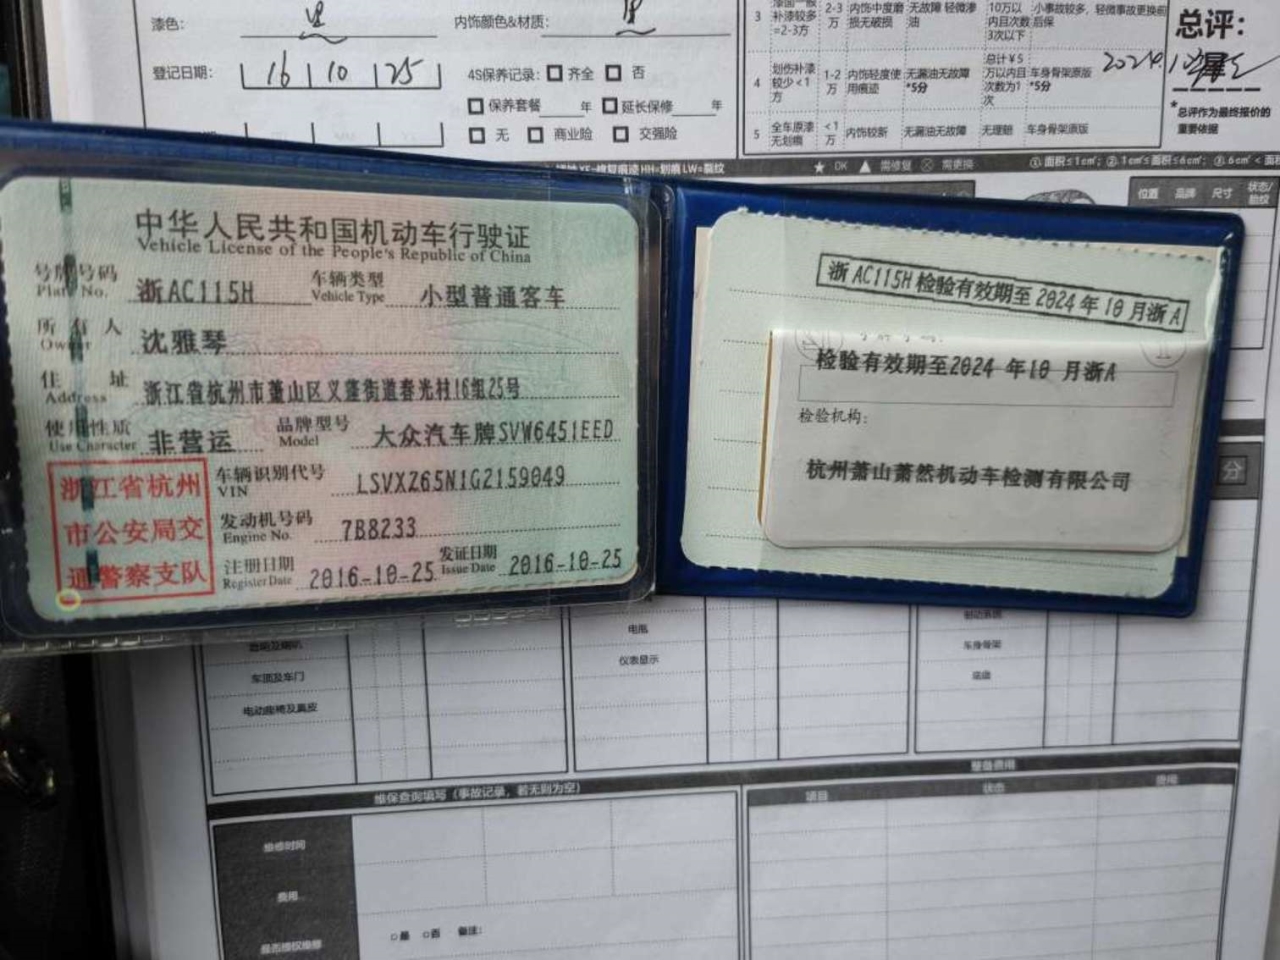 漆色：
内饰颜色&材质：
登记日期： 16 10 25
4S保养记录： □齐全 □否
□保养套餐 年 □延长保修 年
□无 □商业险 □交强险
3 补漆较多=2-3方 2-3万 内饰中度磨损无破损 无故障 轻微渗油 10万以内且次数3次以下 小事故较多，轻微事故更换前后保
4 划伤补漆较少<1方 1-2万 内饰轻度使用痕迹 无漏油无故障*5分 总计￥5万以内且次数为1次 车身骨架原版*5分
5 全车原漆无划痕 <1万 内饰较新 无漏油无故障 无理赔 车身骨架原版
总评：
*总评作为最终报价的重要依据
HH=划痕 LW=裂纹
★ OK ▲ 需修复 ⊗ 需更换
①.面积≤1cm²; ②.1cm²≤面积≤6cm²; ③.6cm²<面积
位置 品牌 尺寸 状态/胎纹
中华人民共和国机动车行驶证
Vehicle License of the People's Republic of China
号牌号码 Plate No. 浙AC115H 车辆类型 Vehicle Type 小型普通客车
所有人 Owner 沈雅琴
住址 Address 浙江省杭州市萧山区义蓬街道春光村16组25号
使用性质 Use Character 非营运 品牌型号 Model 大众汽车牌SVW6451EED
浙江省杭州市公安局交通警察支队
车辆识别代号 VIN LSVXZ65N1G2159049
发动机号码 Engine No. 7B8233
注册日期 Register Date 2016-10-25 发证日期 Issue Date 2016-10-25
浙AC115H检验有效期至2024年10月浙A
检验有效期至2024年10月浙A
检验机构：
杭州萧山萧然机动车检测有限公司
分
电瓶
仪表显示
车身骨架
底盘
车顶及车门
电动座椅及真皮
维保查询填写（事故记录，若无则为空）
整备费用
项目 状态 费用
维修时间
费用
□是 □否 备注：